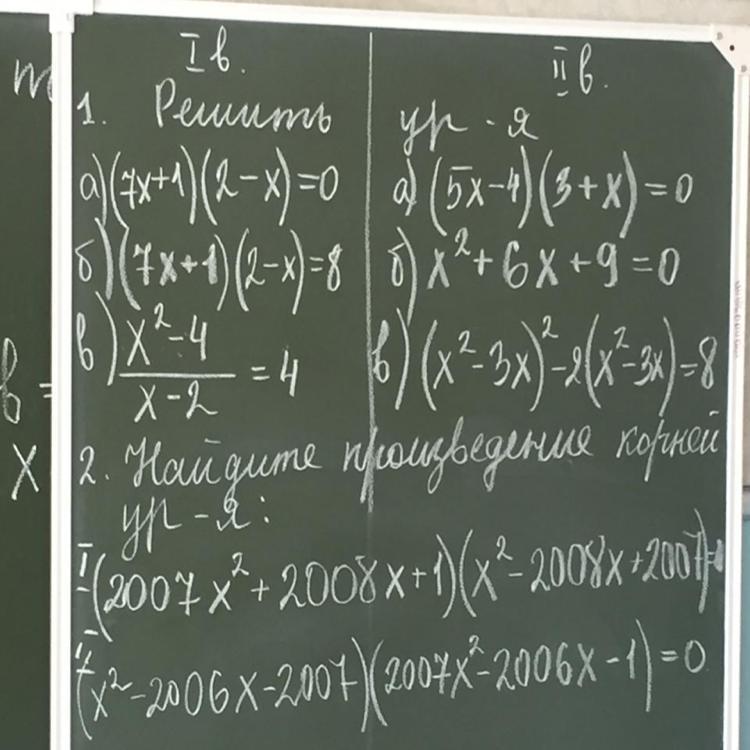 I в. II в.
1. Решить ур-я
а) (7x+1)(2-x)=0 а) (5x-4)(3+x)=0
б) (7x+1)(2-x)=8 б) x²+6x+9=0
в) (x²-4)/(x-2) = 4 в) (x²-3x)²-2(x²-3x)=8
2. Найдите произведение корней
ур-я:
I (2007x²+2008x+1)(x²-2008x+2007)=0
II (x²-2006x-2007)(2007x²-2006x-1)=0
m
в =
x